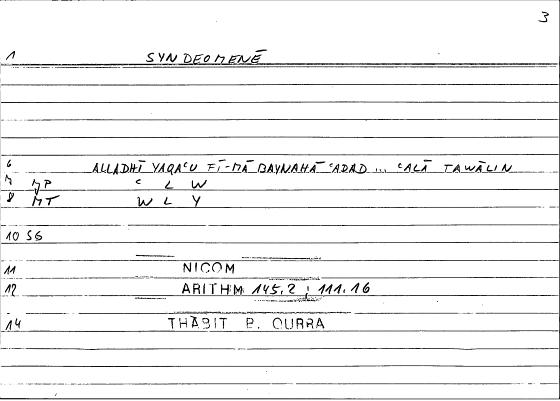 3
1 SYNDEOMENĒ
6 ALLADHĪ YAQAʿU FĪ-MĀ BAYNAHĀ ʿADAD ... ʿALĀ TAWĀLIN
7 MP ʿ L W
8 MT W L Y
10 56
11 NICOM
12 ARITHM 145.2 ; 111.16
14 THĀBIT B. QURRA